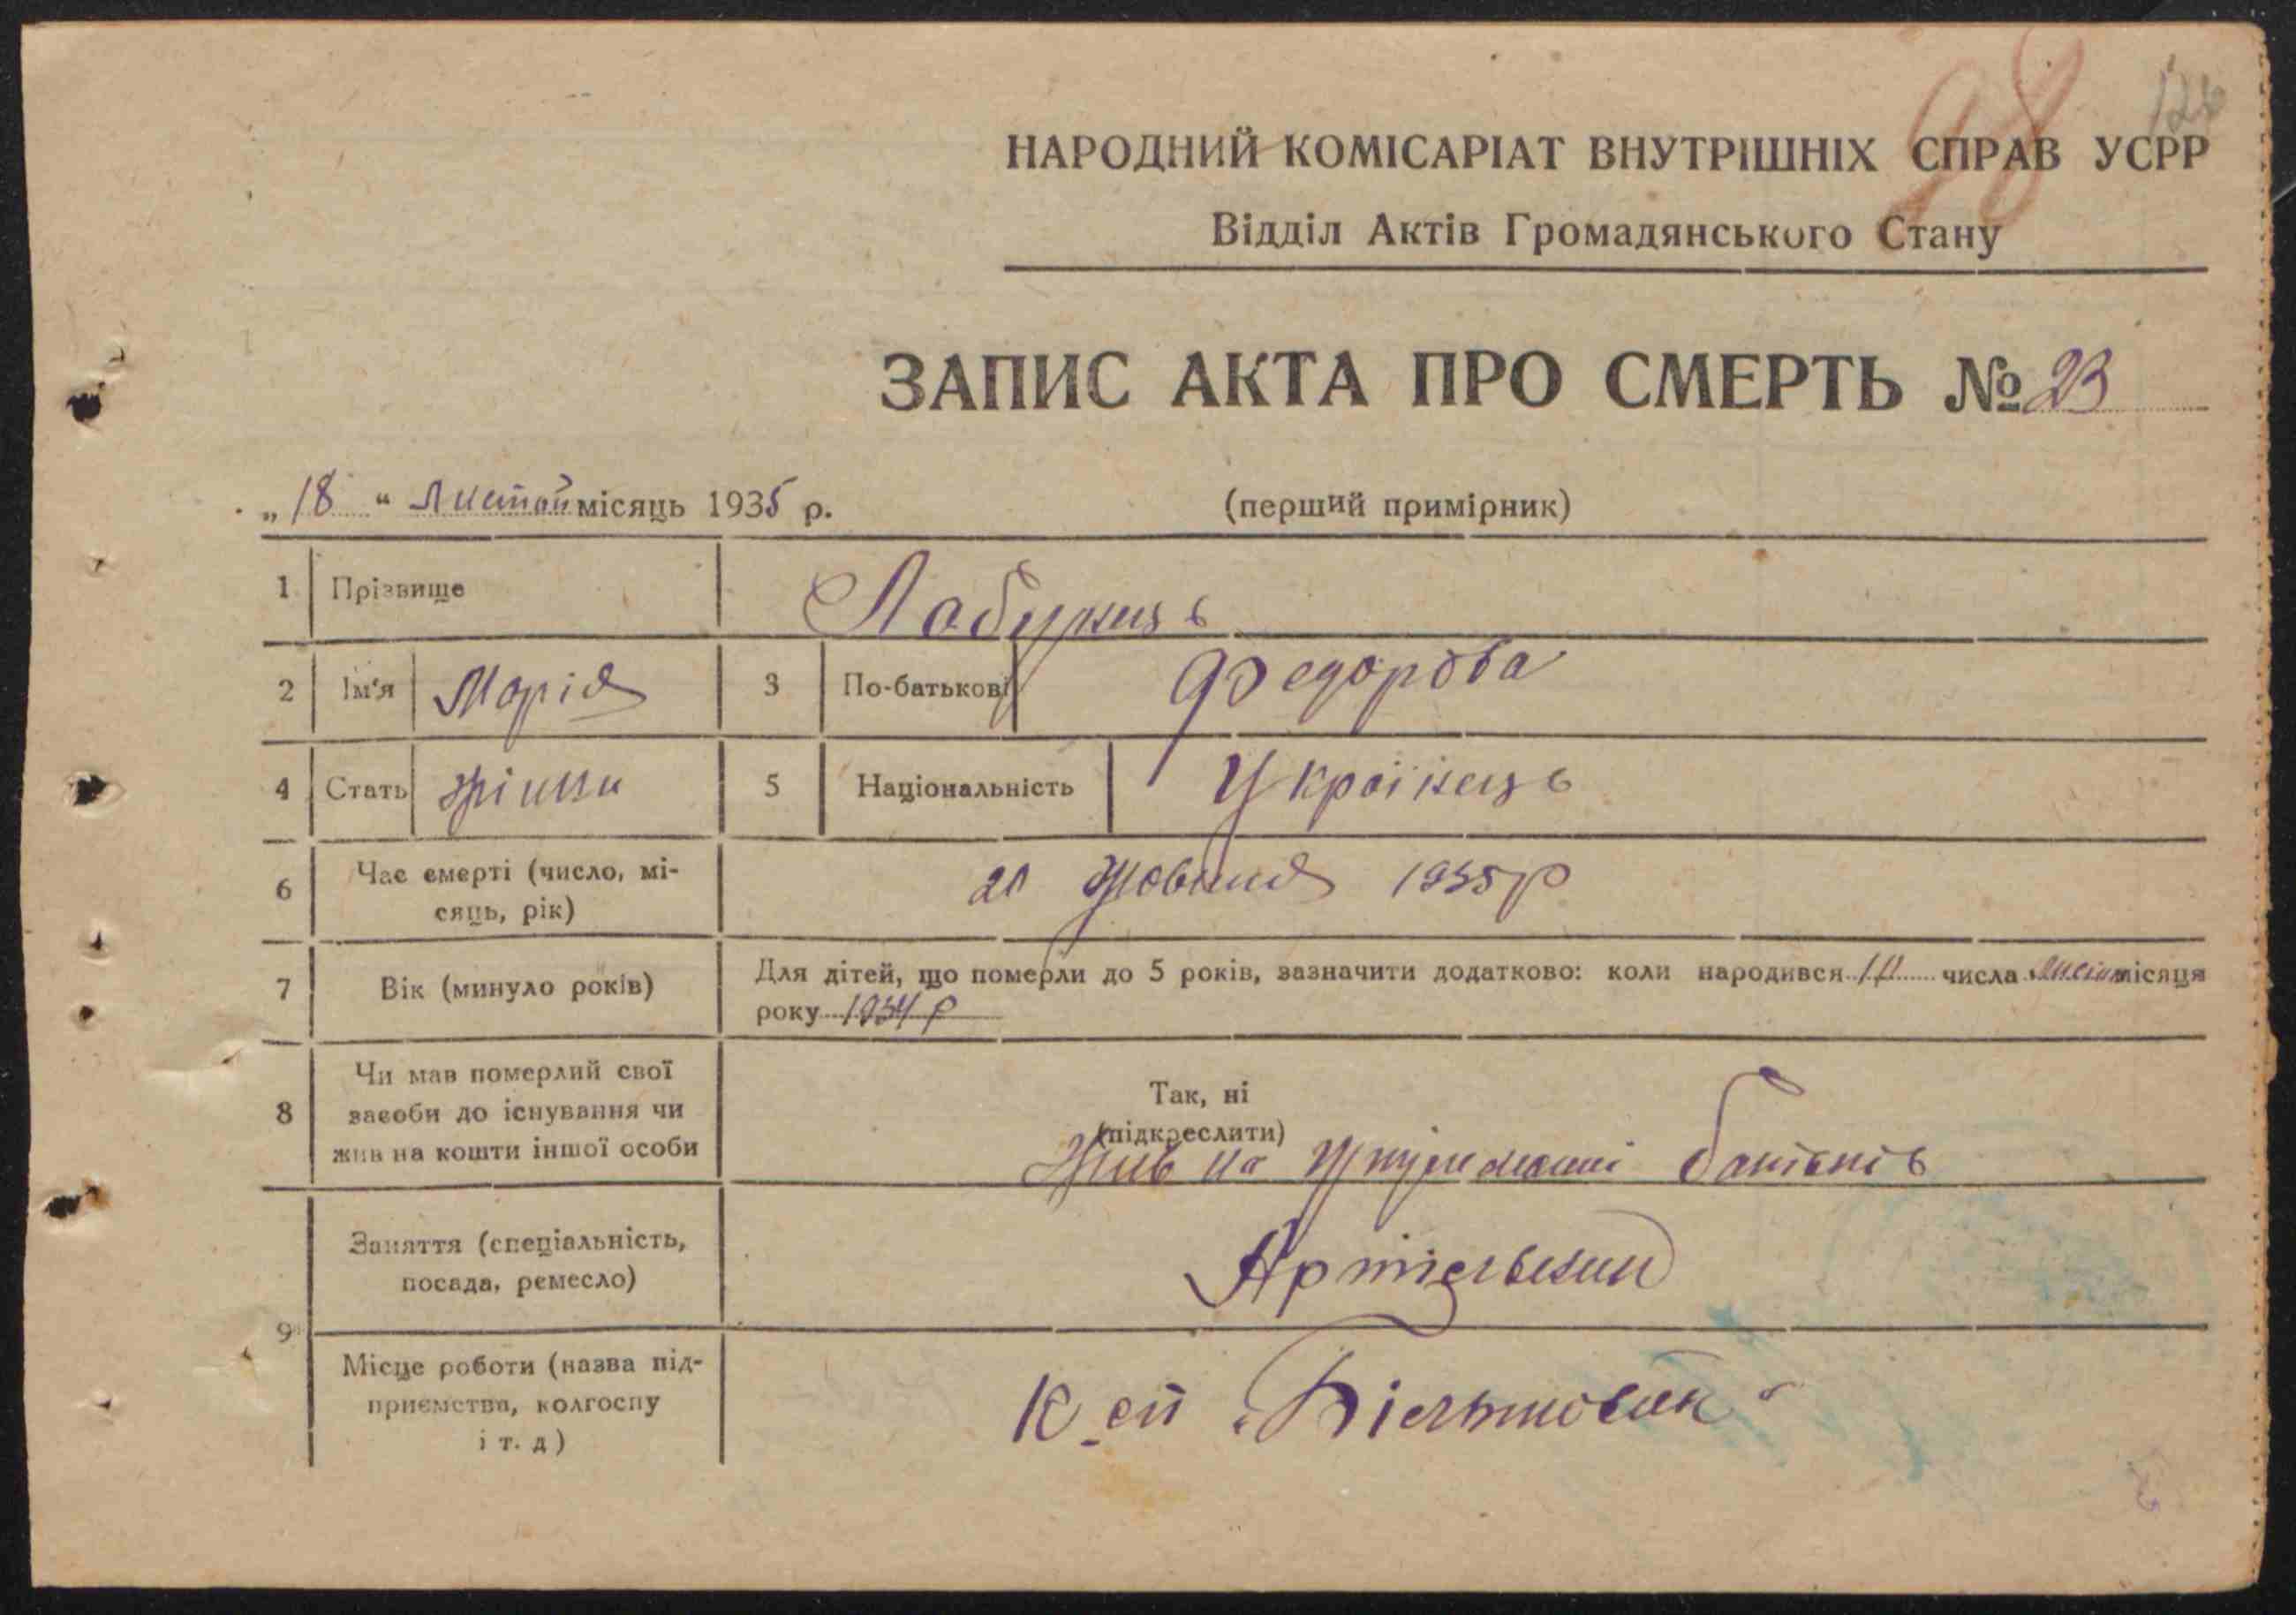 98
126
НАРОДНИЙ КОМІСАРІАТ ВНУТРІШНІХ СПРАВ УСРР
Відділ Актів Громадянського Стану
ЗАПИС АКТА ПРО СМЕРТЬ № 23
„18“ Листоп місяць 1935 р.
(перший примірник)
1 Прізвище Лабунець
2 Ім'я Марія 3 По-батькові Федорова
4 Стать жіноч 5 Національність Українець
6 Час смерті (число, мі-
сяць, рік) 20 Жовтня 1935 р
7 Вік (минуло років) Для дітей, що померли до 5 років, зазначити додатково: коли народився 10 числа місяця
року 1934 р
8 Чи мав померлий свої
засоби до існування чи
жив на кошти іншої особи
Так, ні
(підкреслити)
Жив на батьків
9 Заняття (спеціальність,
посада, ремесло)
Місце роботи (назва під-
приємства, колгоспу
і т. д)
К-сп „Більшовик“